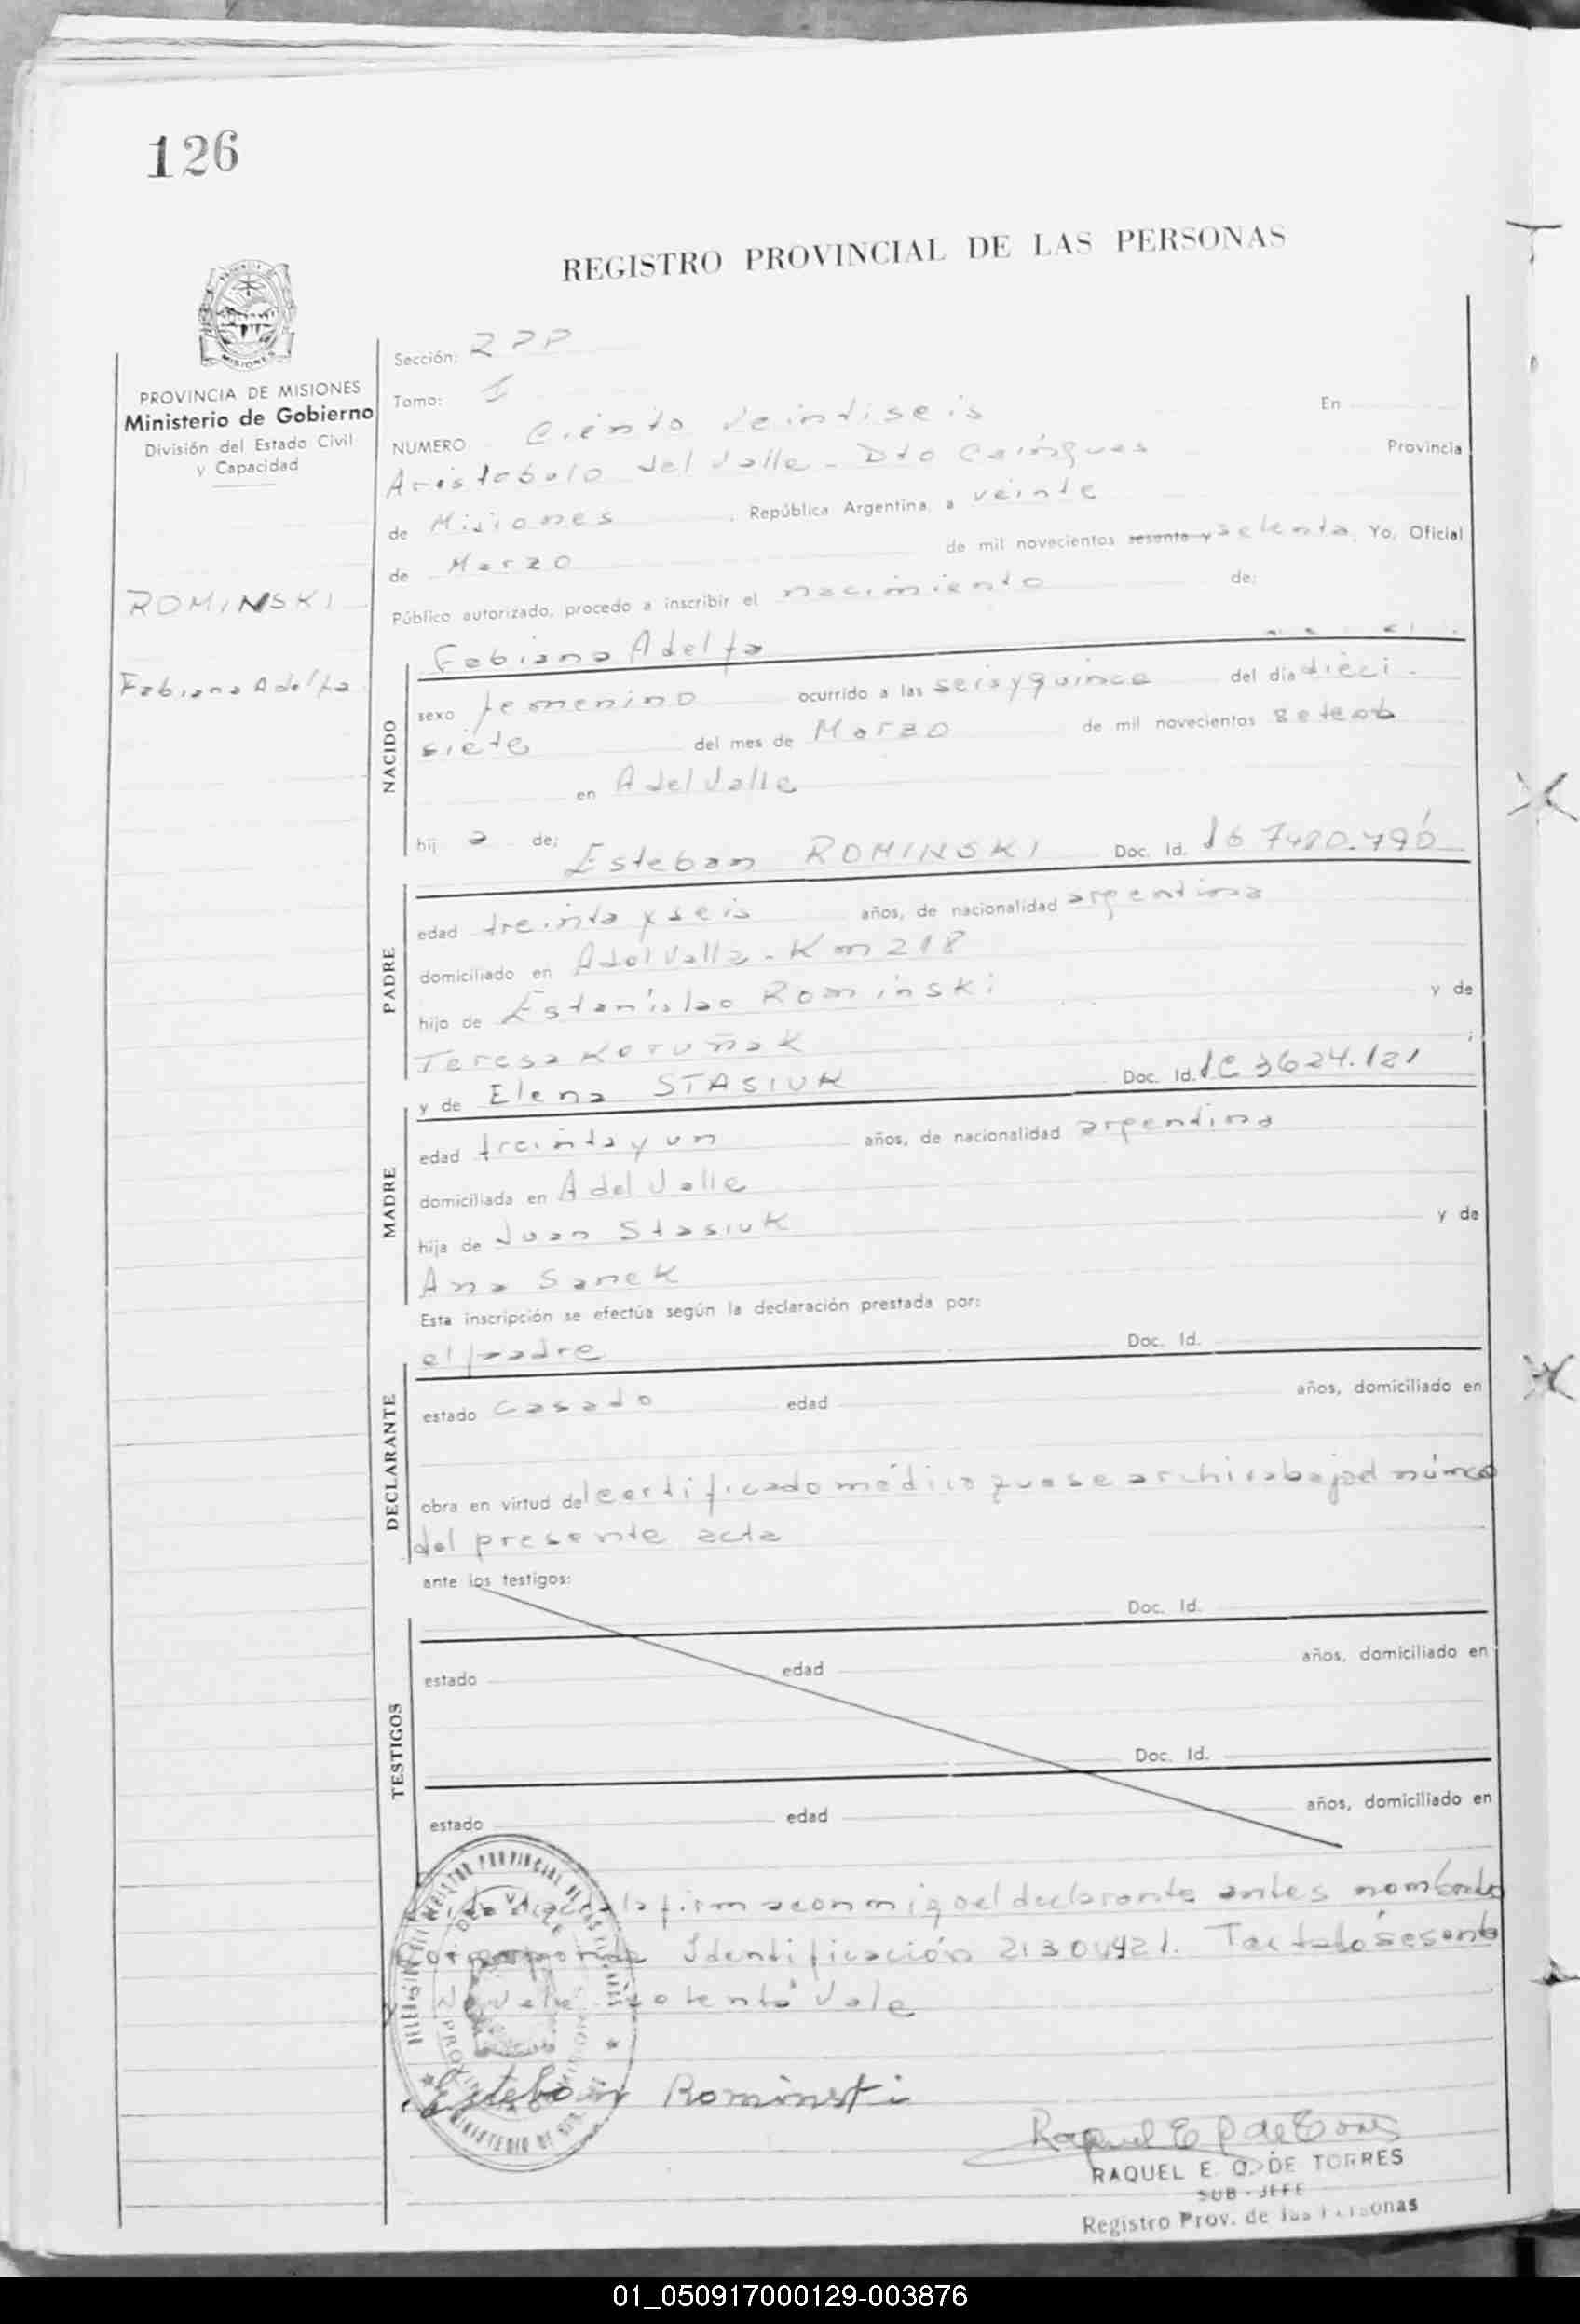 126
REGISTRO PROVINCIAL DE LAS PERSONAS
MISIONES
PROVINCIA DE MISIONES
Ministerio de Gobierno
División del Estado Civil
y Capacidad
ROMINSKI
Fabiana Adelfa
Sección: RPP
Tomo: I
NUMERO Ciento veintiseis En
Aristobulo del Valle - Dto Cainguas Provincia
de Misiones, República Argentina, a veinte
de Marzo de mil novecientos sesenta y setenta, Yo, Oficial
Público autorizado, procedo a inscribir el nacimiento de:
Fabiana Adelfa
NACIDO
sexo femenino ocurrido a las seis y quince del día dieci-
siete del mes de Marzo de mil novecientos setenta
en A del Valle
hij a de:
Esteban ROMINSKI Doc. Id.
PADRE
edad treinta y seis años, de nacionalidad argentina
domiciliado en A del Valle - Km 218
hijo de Estanislao Rominski y de
Teresa Koruñak;
y de Elena STASIUK Doc. Id. LC 3624.121
MADRE
edad treinta y un años, de nacionalidad argentina
domiciliada en A del Valle
hija de Juan Stasiuk y de
Ana Sanek
Esta inscripción se efectúa según la declaración prestada por:
el padre Doc. Id.
DECLARANTE
estado casado edad años, domiciliado en
obra en virtud del certificado médico que se archiva bajo el número
del presente acta
ante los testigos:
Doc. Id.
TESTIGOS
estado edad años, domiciliado en
Doc. Id.
estado edad años, domiciliado en
la firma conmigo el declarante antes nombrado
Identificación 2130442 1. Testado "sesenta
setenta" Vale
Esteban Rominski
RAQUEL E. O. DE TORRES
SUB-JEFE
Registro Prov. de las Personas
01_050917000129-003876